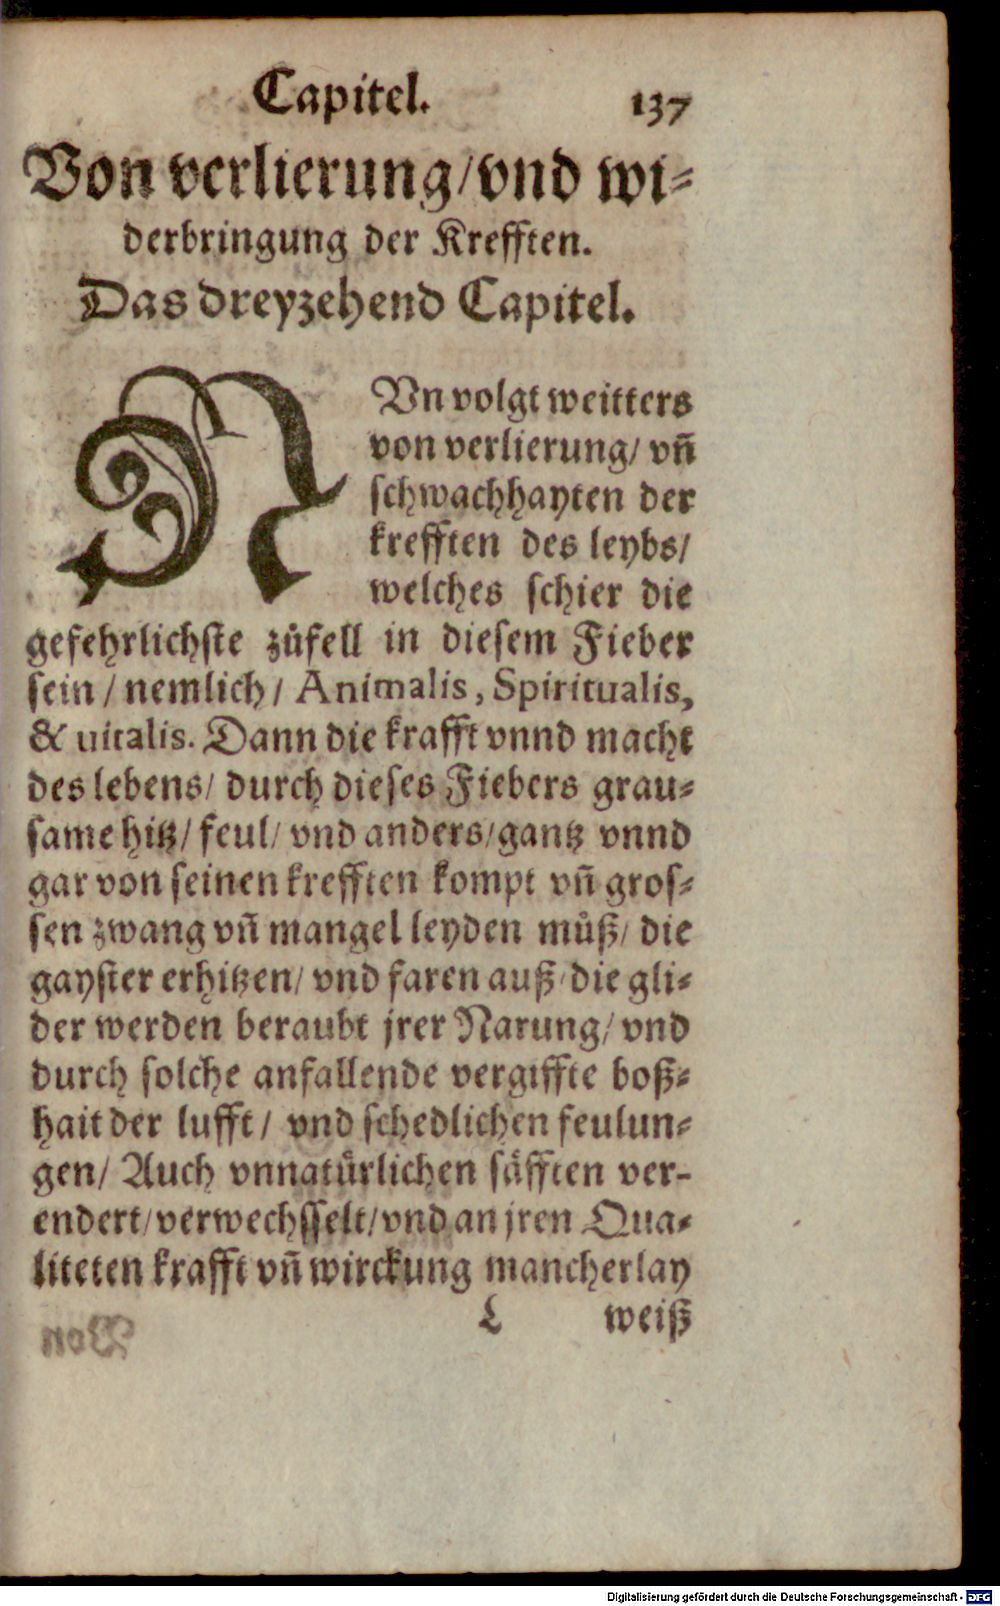 Capitel. 137
Von verlierung/vnd wi⸗
derbringung der Krefften.
Das dreyzehend Capitel.
NVn volgt weitters
von verlierung/ vñ
schwachhayten der
krefften des leybs/
welches schier die
gefehrlichste zůfell in diesem Fieber
sein/ nemlich/ Animalis, Spiritualis,
& uitalis. Dann die krafft vnnd macht
des lebens/ durch dieses Fiebers grau⸗
same hitz/ feul/ vnd anders/gantz vnnd
gar von seinen krefften kompt vñ gros⸗
sen zwang vñ mangel leyden můß/ die
gayster erhitzen/ vnd faren auß/die gli⸗
der werden beraubt jrer Narung/ vnd
durch solche anfallende vergiffte boß⸗
hait der lufft/ vnd schedlichen feulun⸗
gen/ Auch vnnatürlichen säfften ver-
endert/verwechsselt/vnd an jren Qua⸗
liteten krafft vñ wirckung mancherlay
L weiß
Digitalisierung gefördert durch die Deutsche Forschungsgemeinschaft - DFG